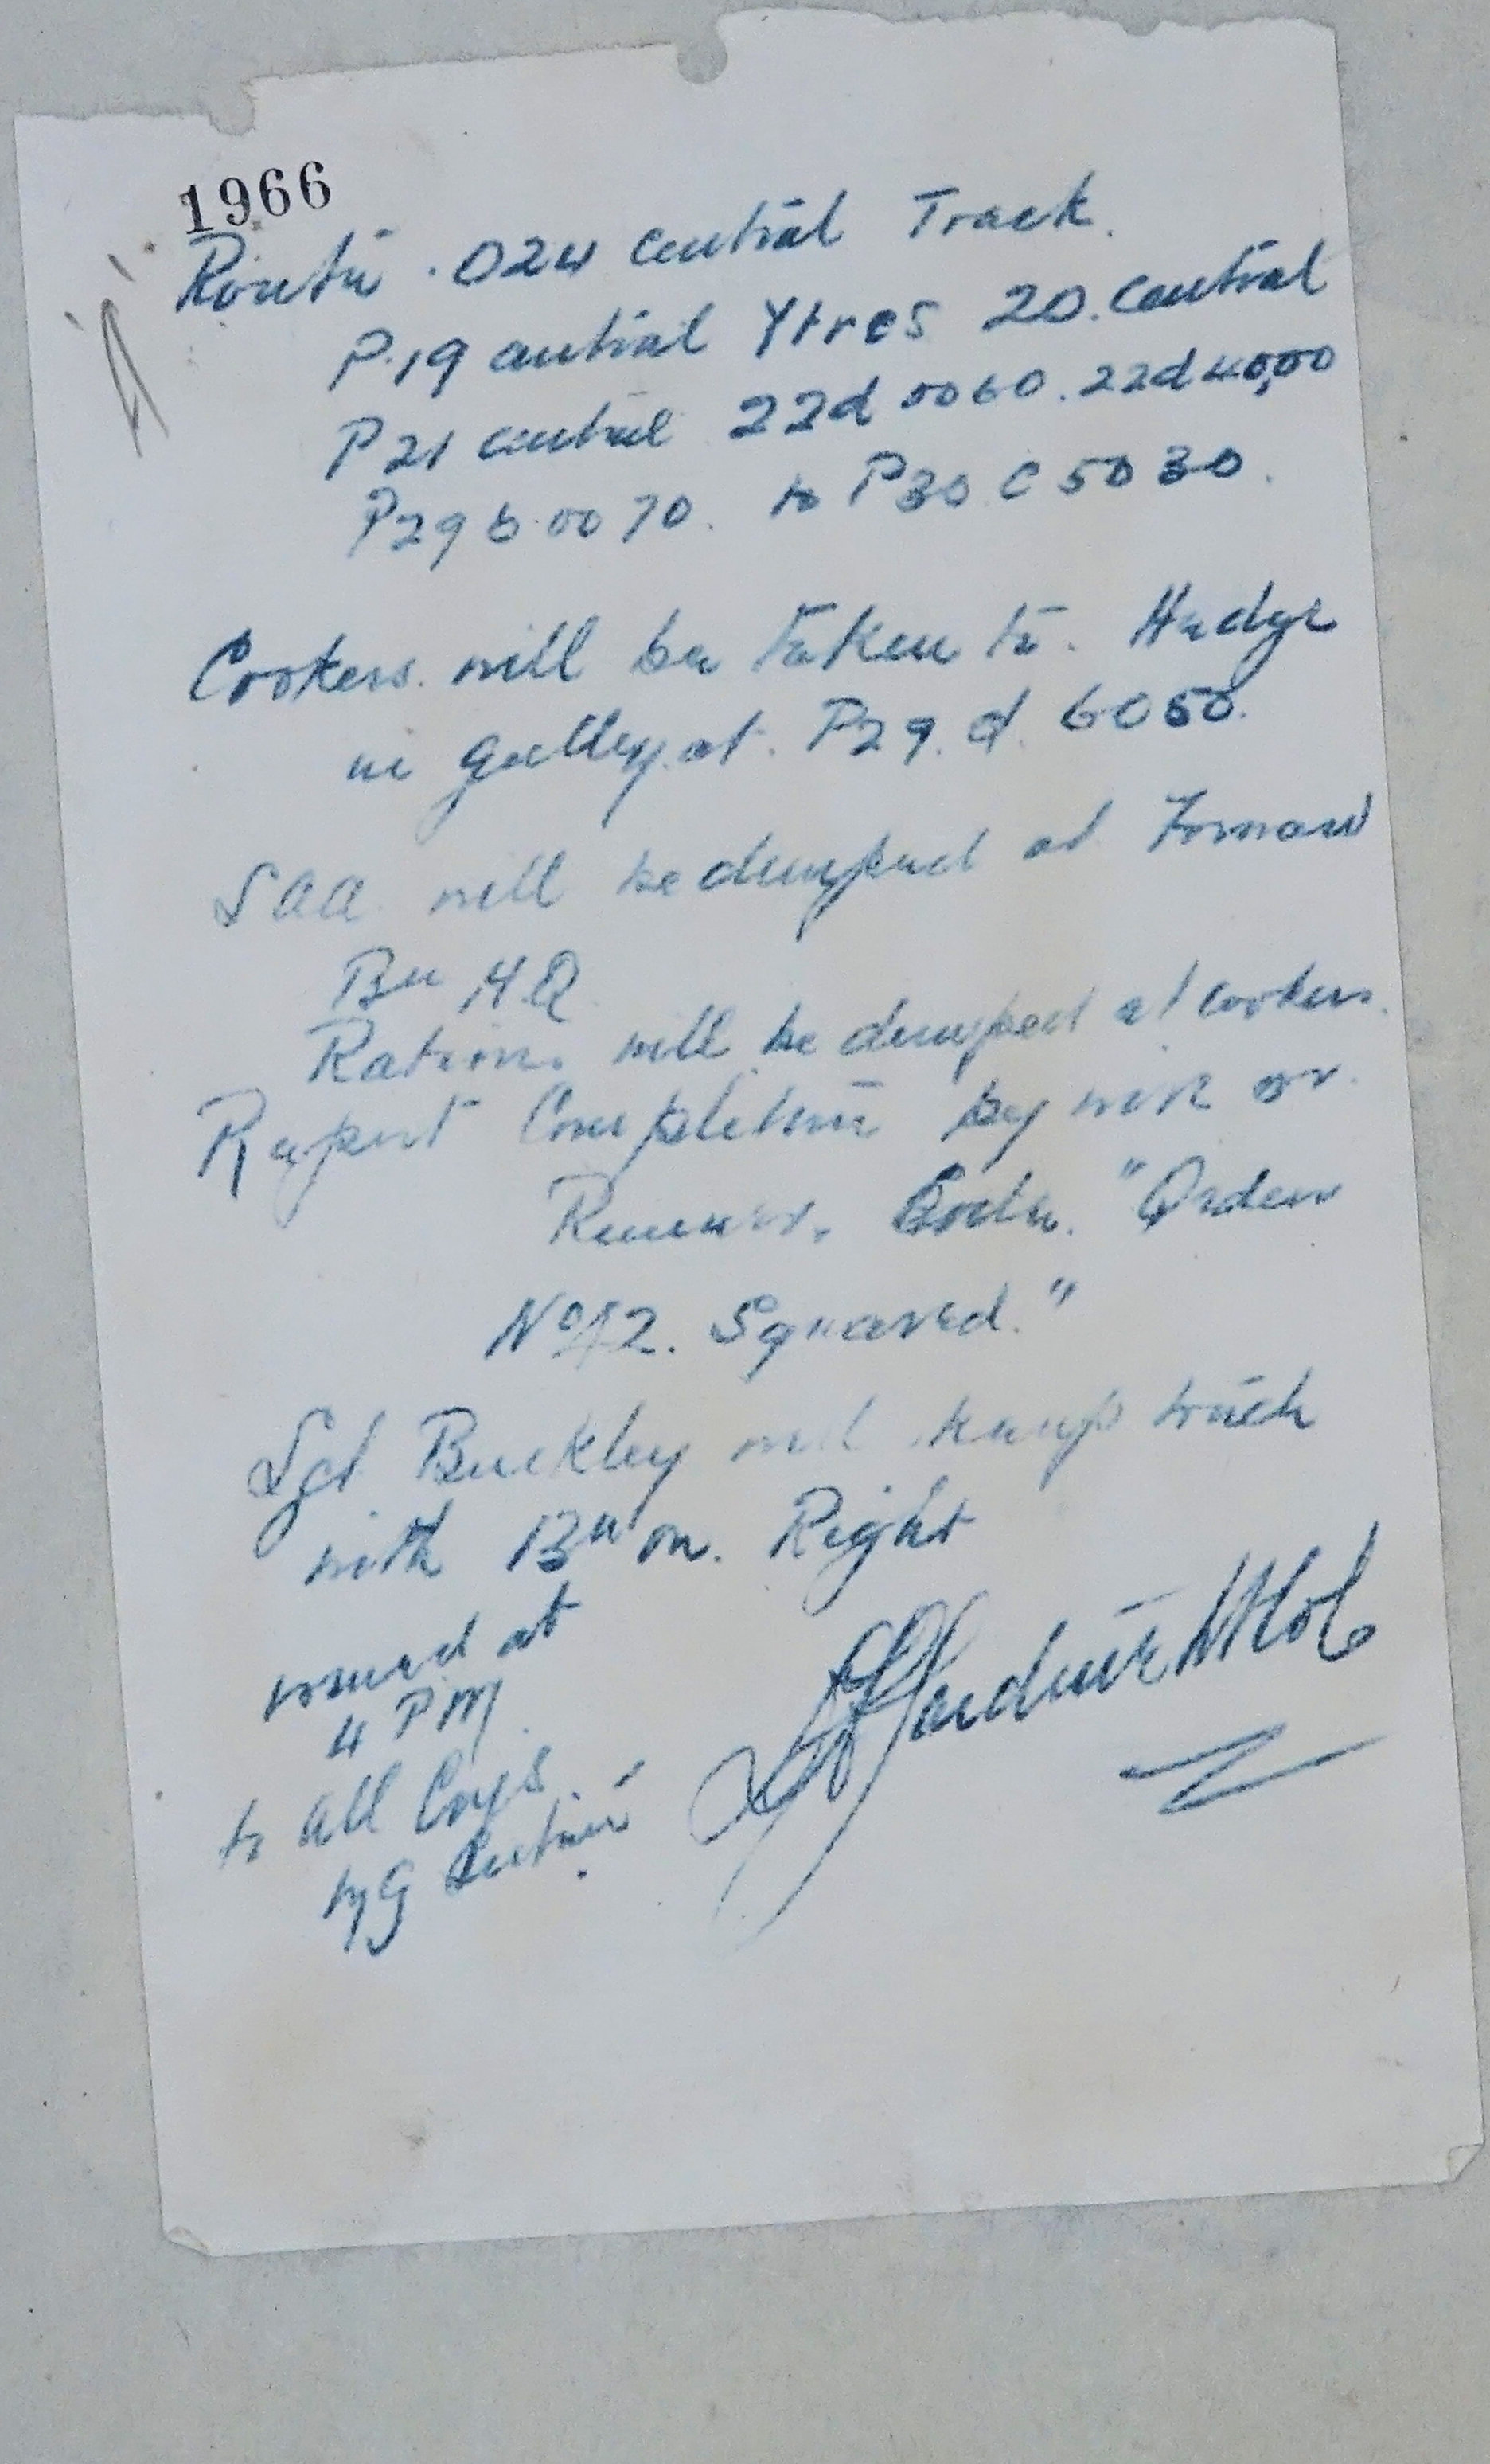 1966
Route. O24 central Track.
P.19 central Ytres 20. central
P21 central 22d 0060. 22d 40,00
P29 b 00 70. to P30 C 50 30.
Cookers. will be taken to. Hedge
in gulley at. P29. d. 60 50.
SAA. will be dumped at Forward
Bn H.Q.
Rations will be dumped at cookers.
Report Completion by wire or
Runner. Code. "Orders
No 12. Squared."
Sgt Buckley will keep touch
with Bn on. Right
issued at
4 PM.
to all Coys.
MG Section
Gardner Lt Col